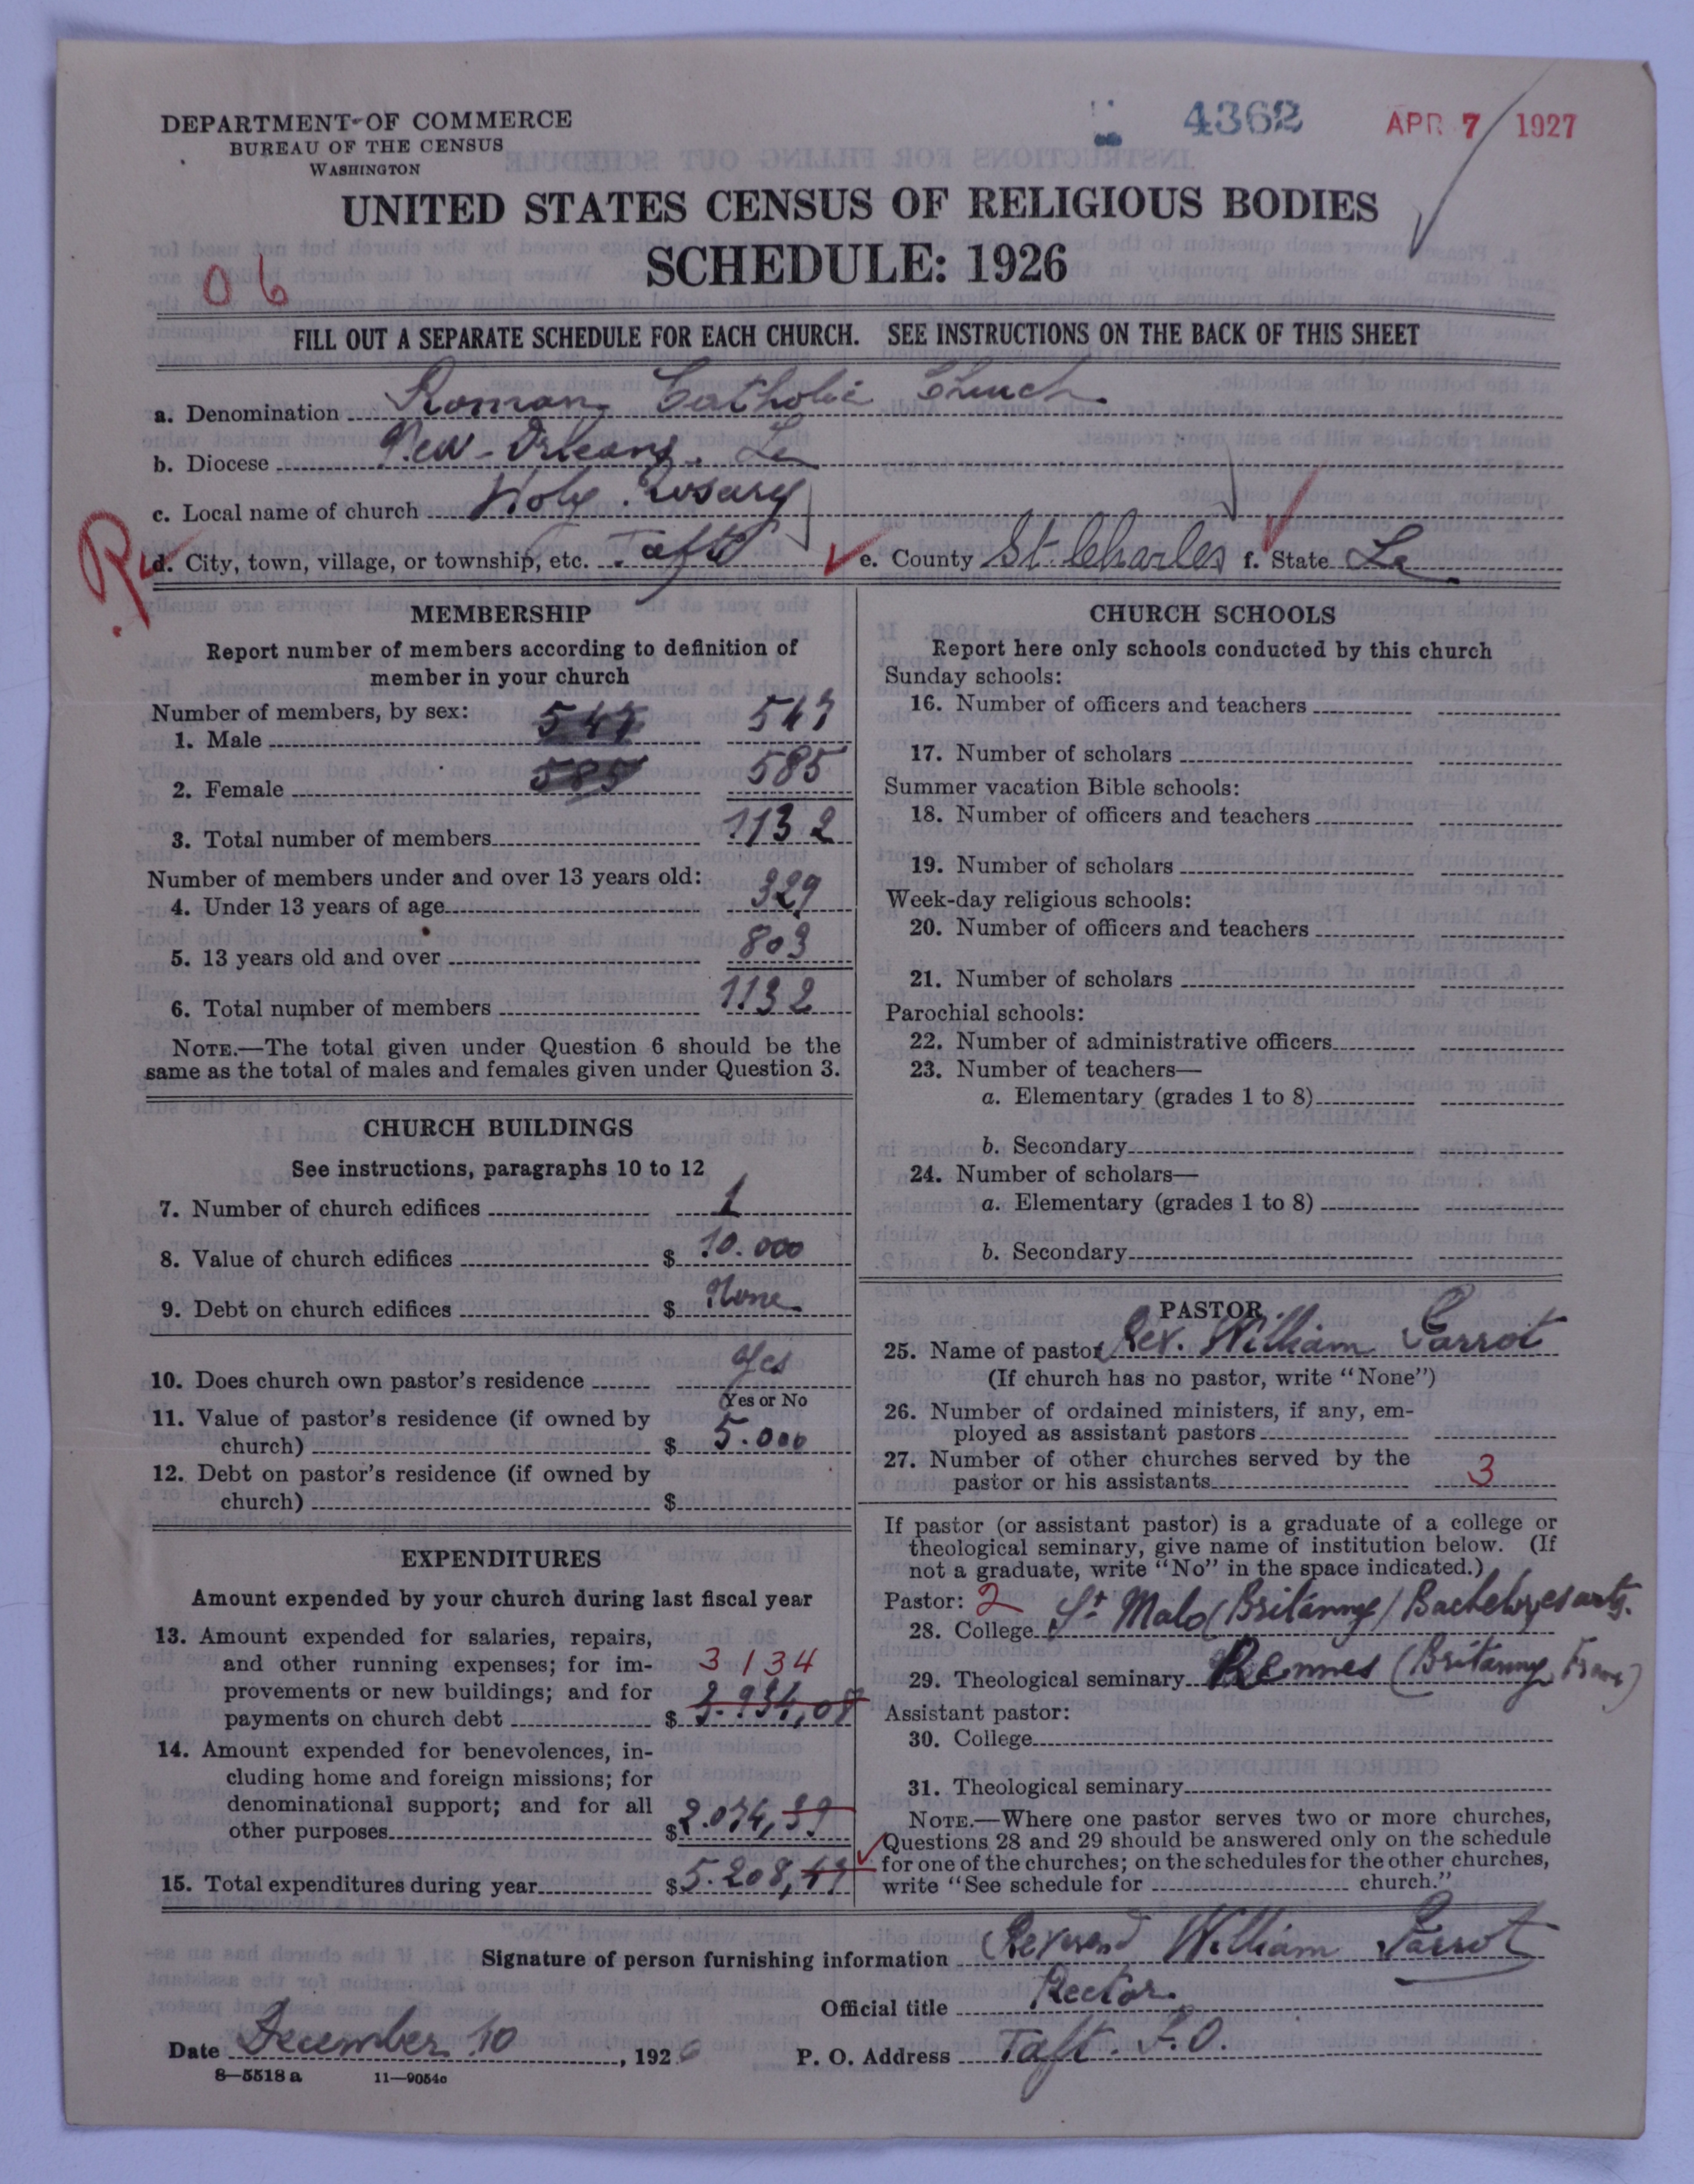 DEPARTMENT OF COMMERCE
BUREAU OF THE CENSUS
WASHINGTON
4362
APR 7 1927
UNITED STATES CENSUS OF RELIGIOUS BODIES
SCHEDULE: 1926
06
FILL OUT A SEPARATE SCHEDULE FOR EACH CHURCH. SEE INSTRUCTIONS ON THE BACK OF THIS SHEET
a. Denomination Roman Catholic Church
b. Diocese New-Orleans. La
c. Local name of church Holy Rosary
R
d. City, town, village, or township, etc. Taft e. County St. Charles f. State La
MEMBERSHIP
Report number of members according to definition of
member in your church
Number of members, by sex:
1. Male 547 547
2. Female 585 585
3. Total number of members 1132
Number of members under and over 13 years old:
4. Under 13 years of age 329
5. 13 years old and over 803
6. Total number of members 1132
NOTE.—The total given under Question 6 should be the
same as the total of males and females given under Question 3.
CHURCH BUILDINGS
See instructions, paragraphs 10 to 12
7. Number of church edifices 1
8. Value of church edifices $ 10.000
9. Debt on church edifices $ None
10. Does church own pastor's residence Yes
Yes or No
11. Value of pastor's residence (if owned by
church) $ 5.000
12. Debt on pastor's residence (if owned by
church) $
EXPENDITURES
Amount expended by your church during last fiscal year
13. Amount expended for salaries, repairs,
and other running expenses; for im-
provements or new buildings; and for
payments on church debt $
3134
14. Amount expended for benevolences, in-
cluding home and foreign missions; for
denominational support; and for all
other purposes $ 2.074,39
15. Total expenditures during year $ 5.208,47
CHURCH SCHOOLS
Report here only schools conducted by this church
Sunday schools:
16. Number of officers and teachers
17. Number of scholars
Summer vacation Bible schools:
18. Number of officers and teachers
19. Number of scholars
Week-day religious schools:
20. Number of officers and teachers
21. Number of scholars
Parochial schools:
22. Number of administrative officers
23. Number of teachers—
a. Elementary (grades 1 to 8)
b. Secondary
24. Number of scholars—
a. Elementary (grades 1 to 8)
b. Secondary
PASTOR
25. Name of pastor Rev. William Parrot
(If church has no pastor, write "None")
26. Number of ordained ministers, if any, em-
ployed as assistant pastors
27. Number of other churches served by the
pastor or his assistants 3
If pastor (or assistant pastor) is a graduate of a college or
theological seminary, give name of institution below. (If
not a graduate, write "No" in the space indicated.)
Pastor: 2
28. College St Malo (Britanny) Bachelor es arts.
29. Theological seminary Rennes (Britanny, France)
Assistant pastor:
30. College
31. Theological seminary
NOTE.—Where one pastor serves two or more churches,
Questions 28 and 29 should be answered only on the schedule
for one of the churches; on the schedules for the other churches,
write "See schedule for church."
Signature of person furnishing information Reverend William Parrot
Official title Rector.
Date December 10, 1926 P. O. Address Taft. P.O.
8—5518 a 11—9054c